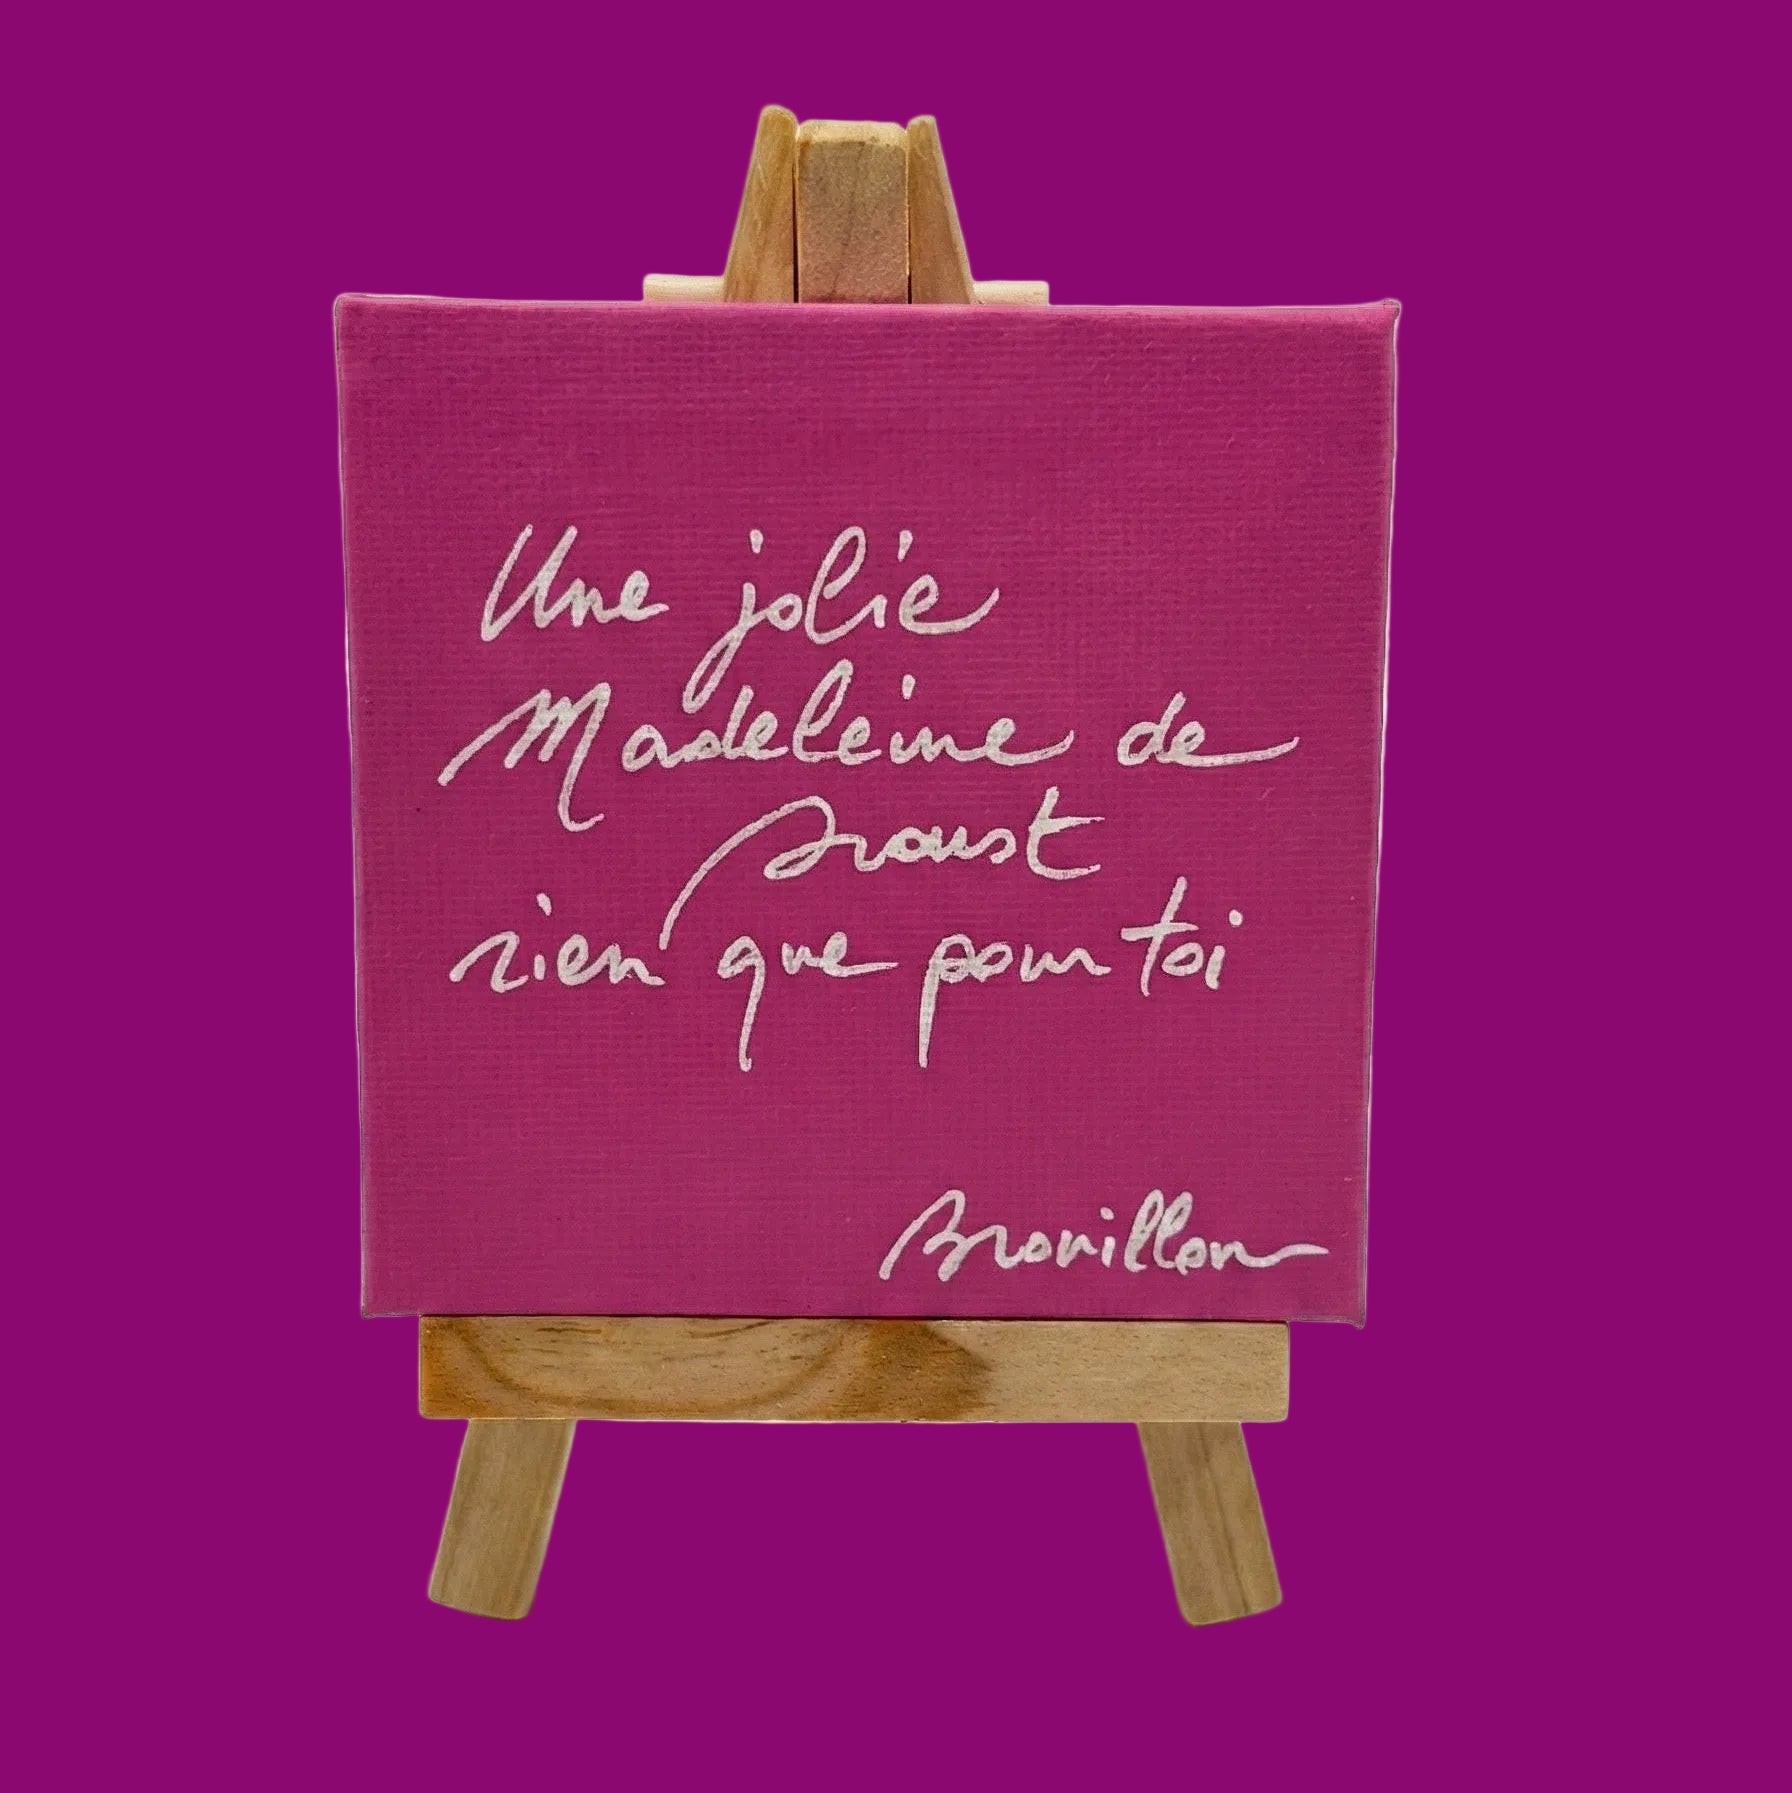 Une jolie
Madeleine de
Proust
rien que pour toi
Brouillon